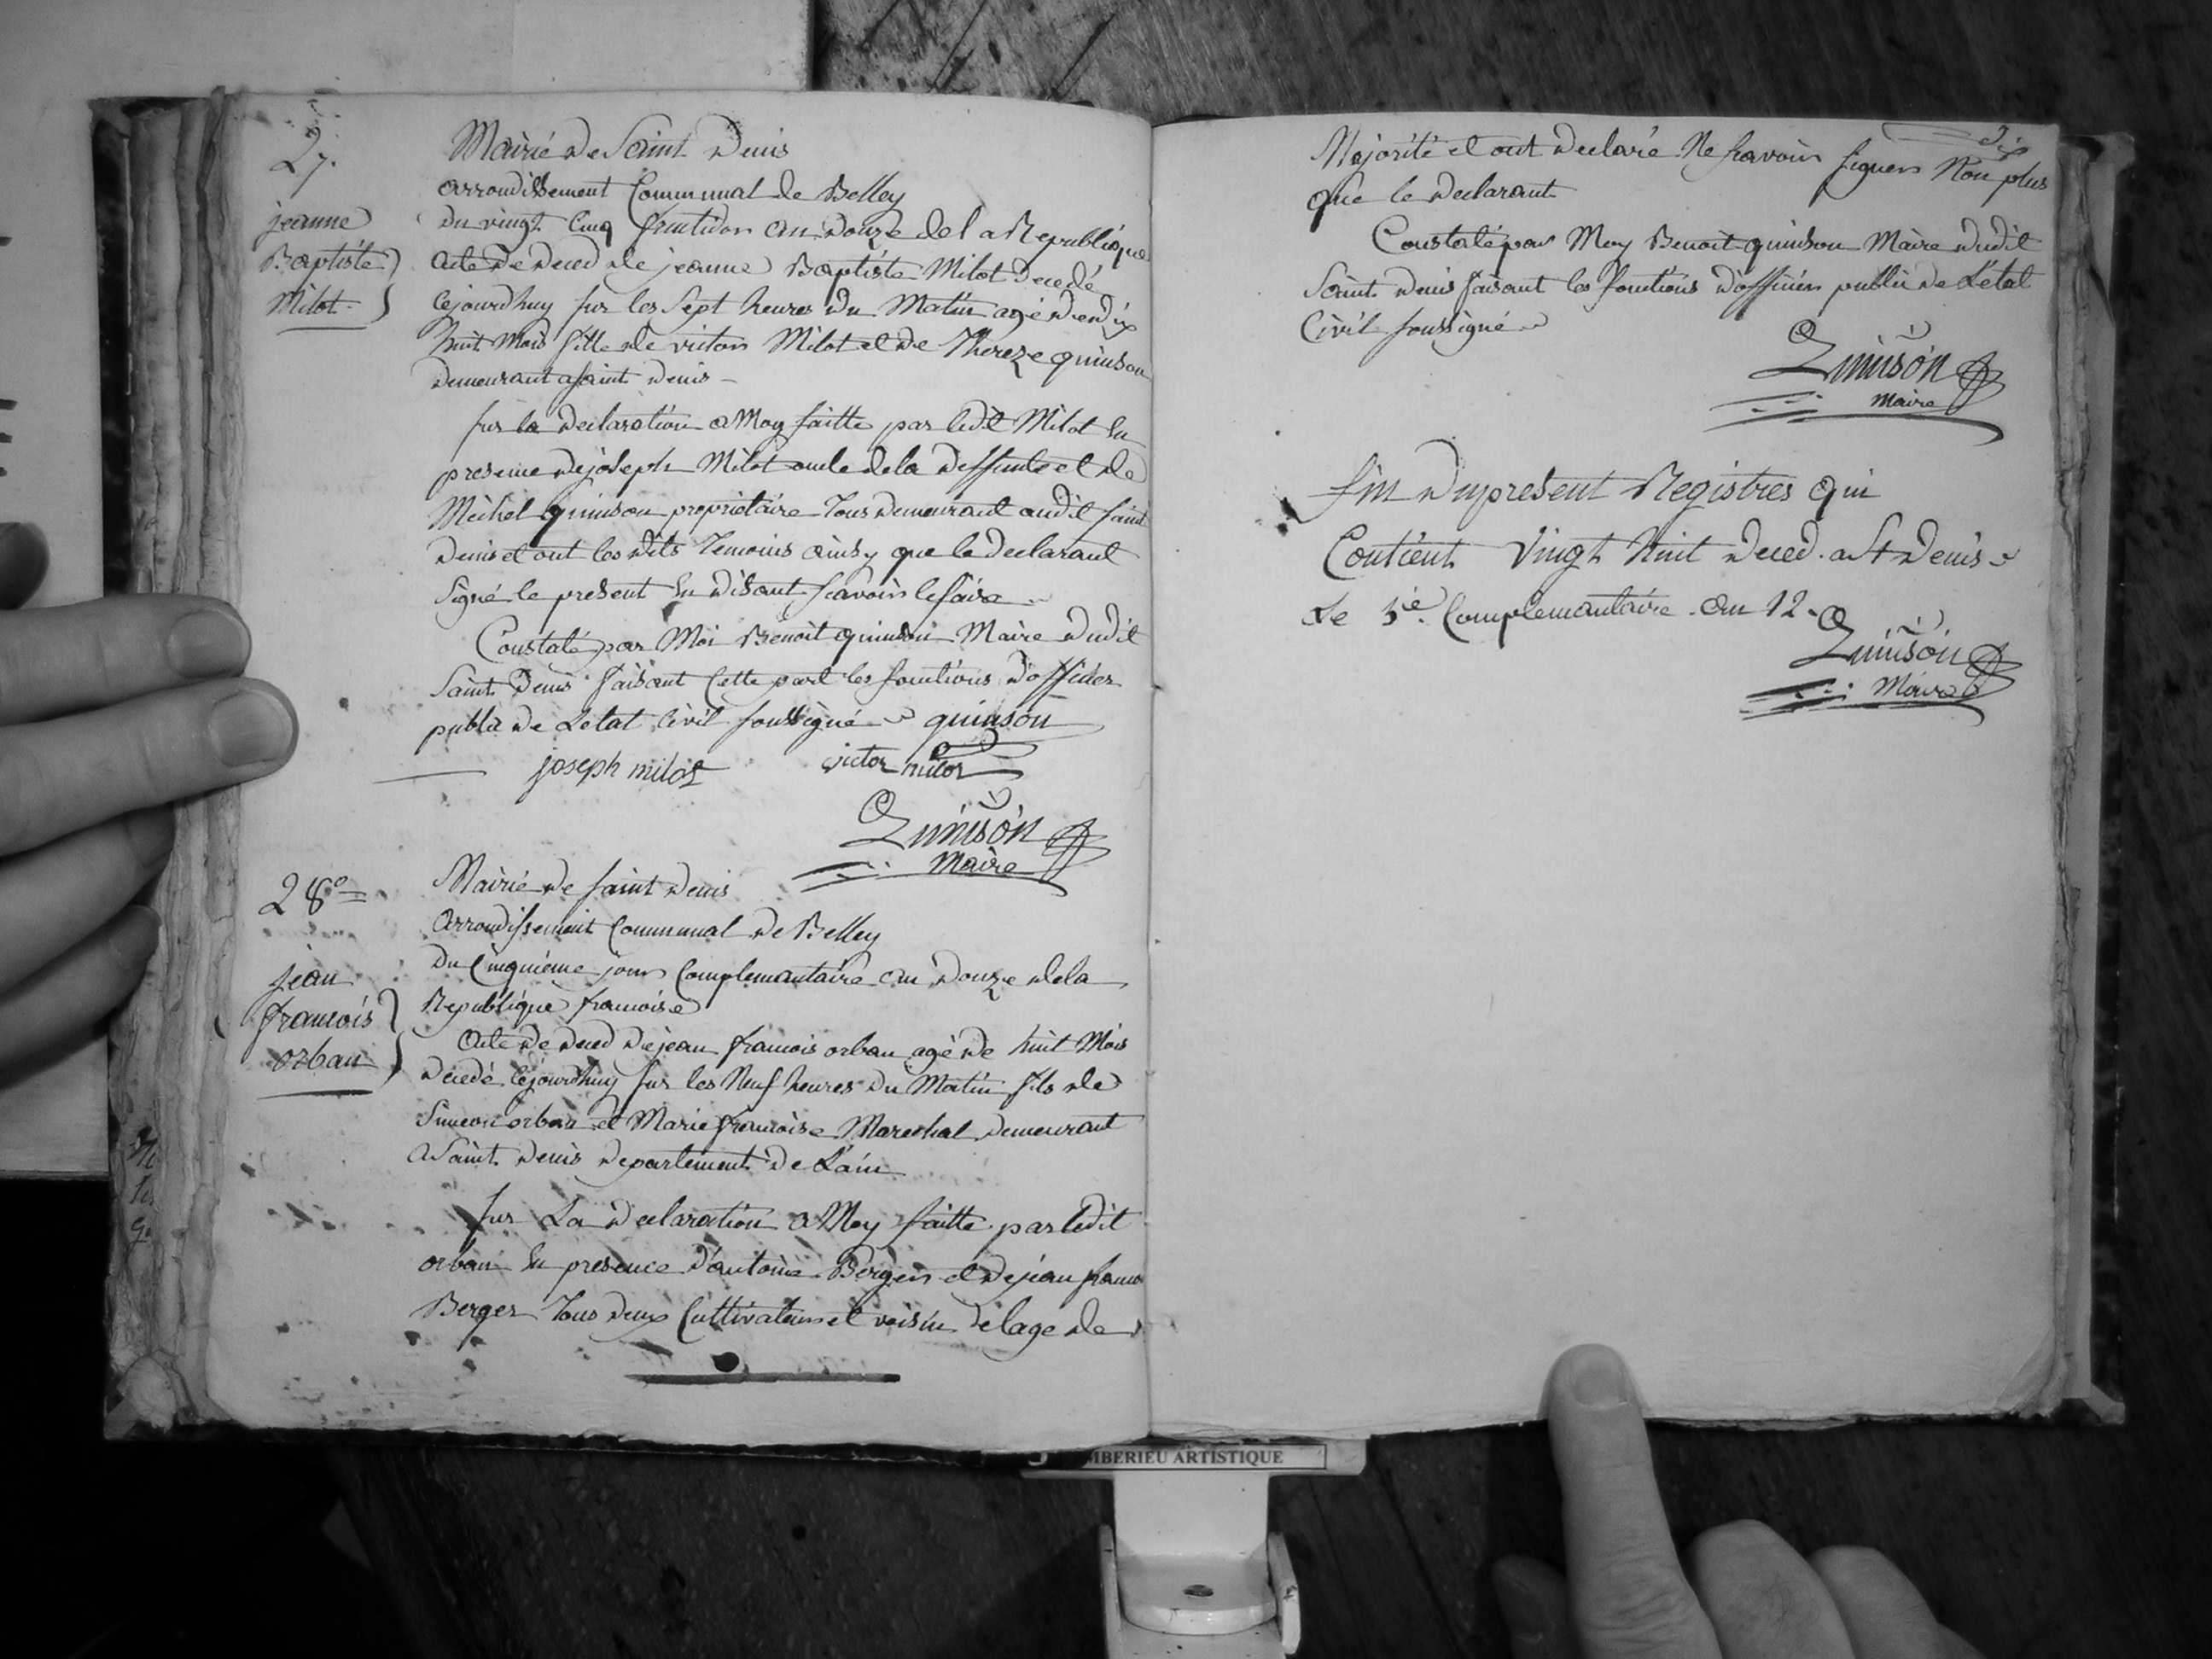 27.
jeanne
Baptiste
Milot
Mairié de Saint Denis
arrondissement Communal de Belley
du vingt Cinq fructidor an douze de la Republique
acte de deced de jeanne Baptiste Milot decedé
Cejourdhuy sur les Sept heures du Matin agé de dix
huit Mois fille de victor Milot et de Thereze quinson
demeurant a saint denis
sur la declaration a Moy faitte par ledit Milot En
presence de joseph Milot oncle de la deffunte et de
Michel quinson propriétaire Tous demeurant audit saint
denis et ont les dits temoins ainsy que le declarant
Signé le present En disant scavoir le faire
Constaté par Moi Benoit quinson Maire dudit
Saint Denis faisant Cette part les fonctions d'officier
public de Letat Civil soussigné quinson
joseph milot victor milot
Quinson
Maire
28e
jean
francois
orban
Mairié de saint denis
arrondissement Communal de Belley
du Cinquiéme jour Complemantaire an douze de la
Republique francoise
Acte de deced de jean francois orban agé de huit Mois
decedé Cejourdhuy sur les Neuf heures du Matin fils de
Simeon orban et Marie francoise Marechal demeurant
a Saint denis departement de L'ain
sur La declaration a Moy faitte par ledit
orban En presence d'antoine Berger et de jean francois
Berger Tous deux Cultivateurs et voisin de lage de
dix
Majorité et ont declaré Ne scavoir signer Non plus
que le declarant
Constaté par Moy Benoit quinson Maire dudit
Saint denis faisant les fonctions d'officier public de Letat
Civil soussigné
Quinson
maire
fin du present Registres qui
Contient Vingt huit deced. a St denis
Le 5ie. Complemantaire an 12.
Quinson
Maire
MBERIEU ARTISTIQUE